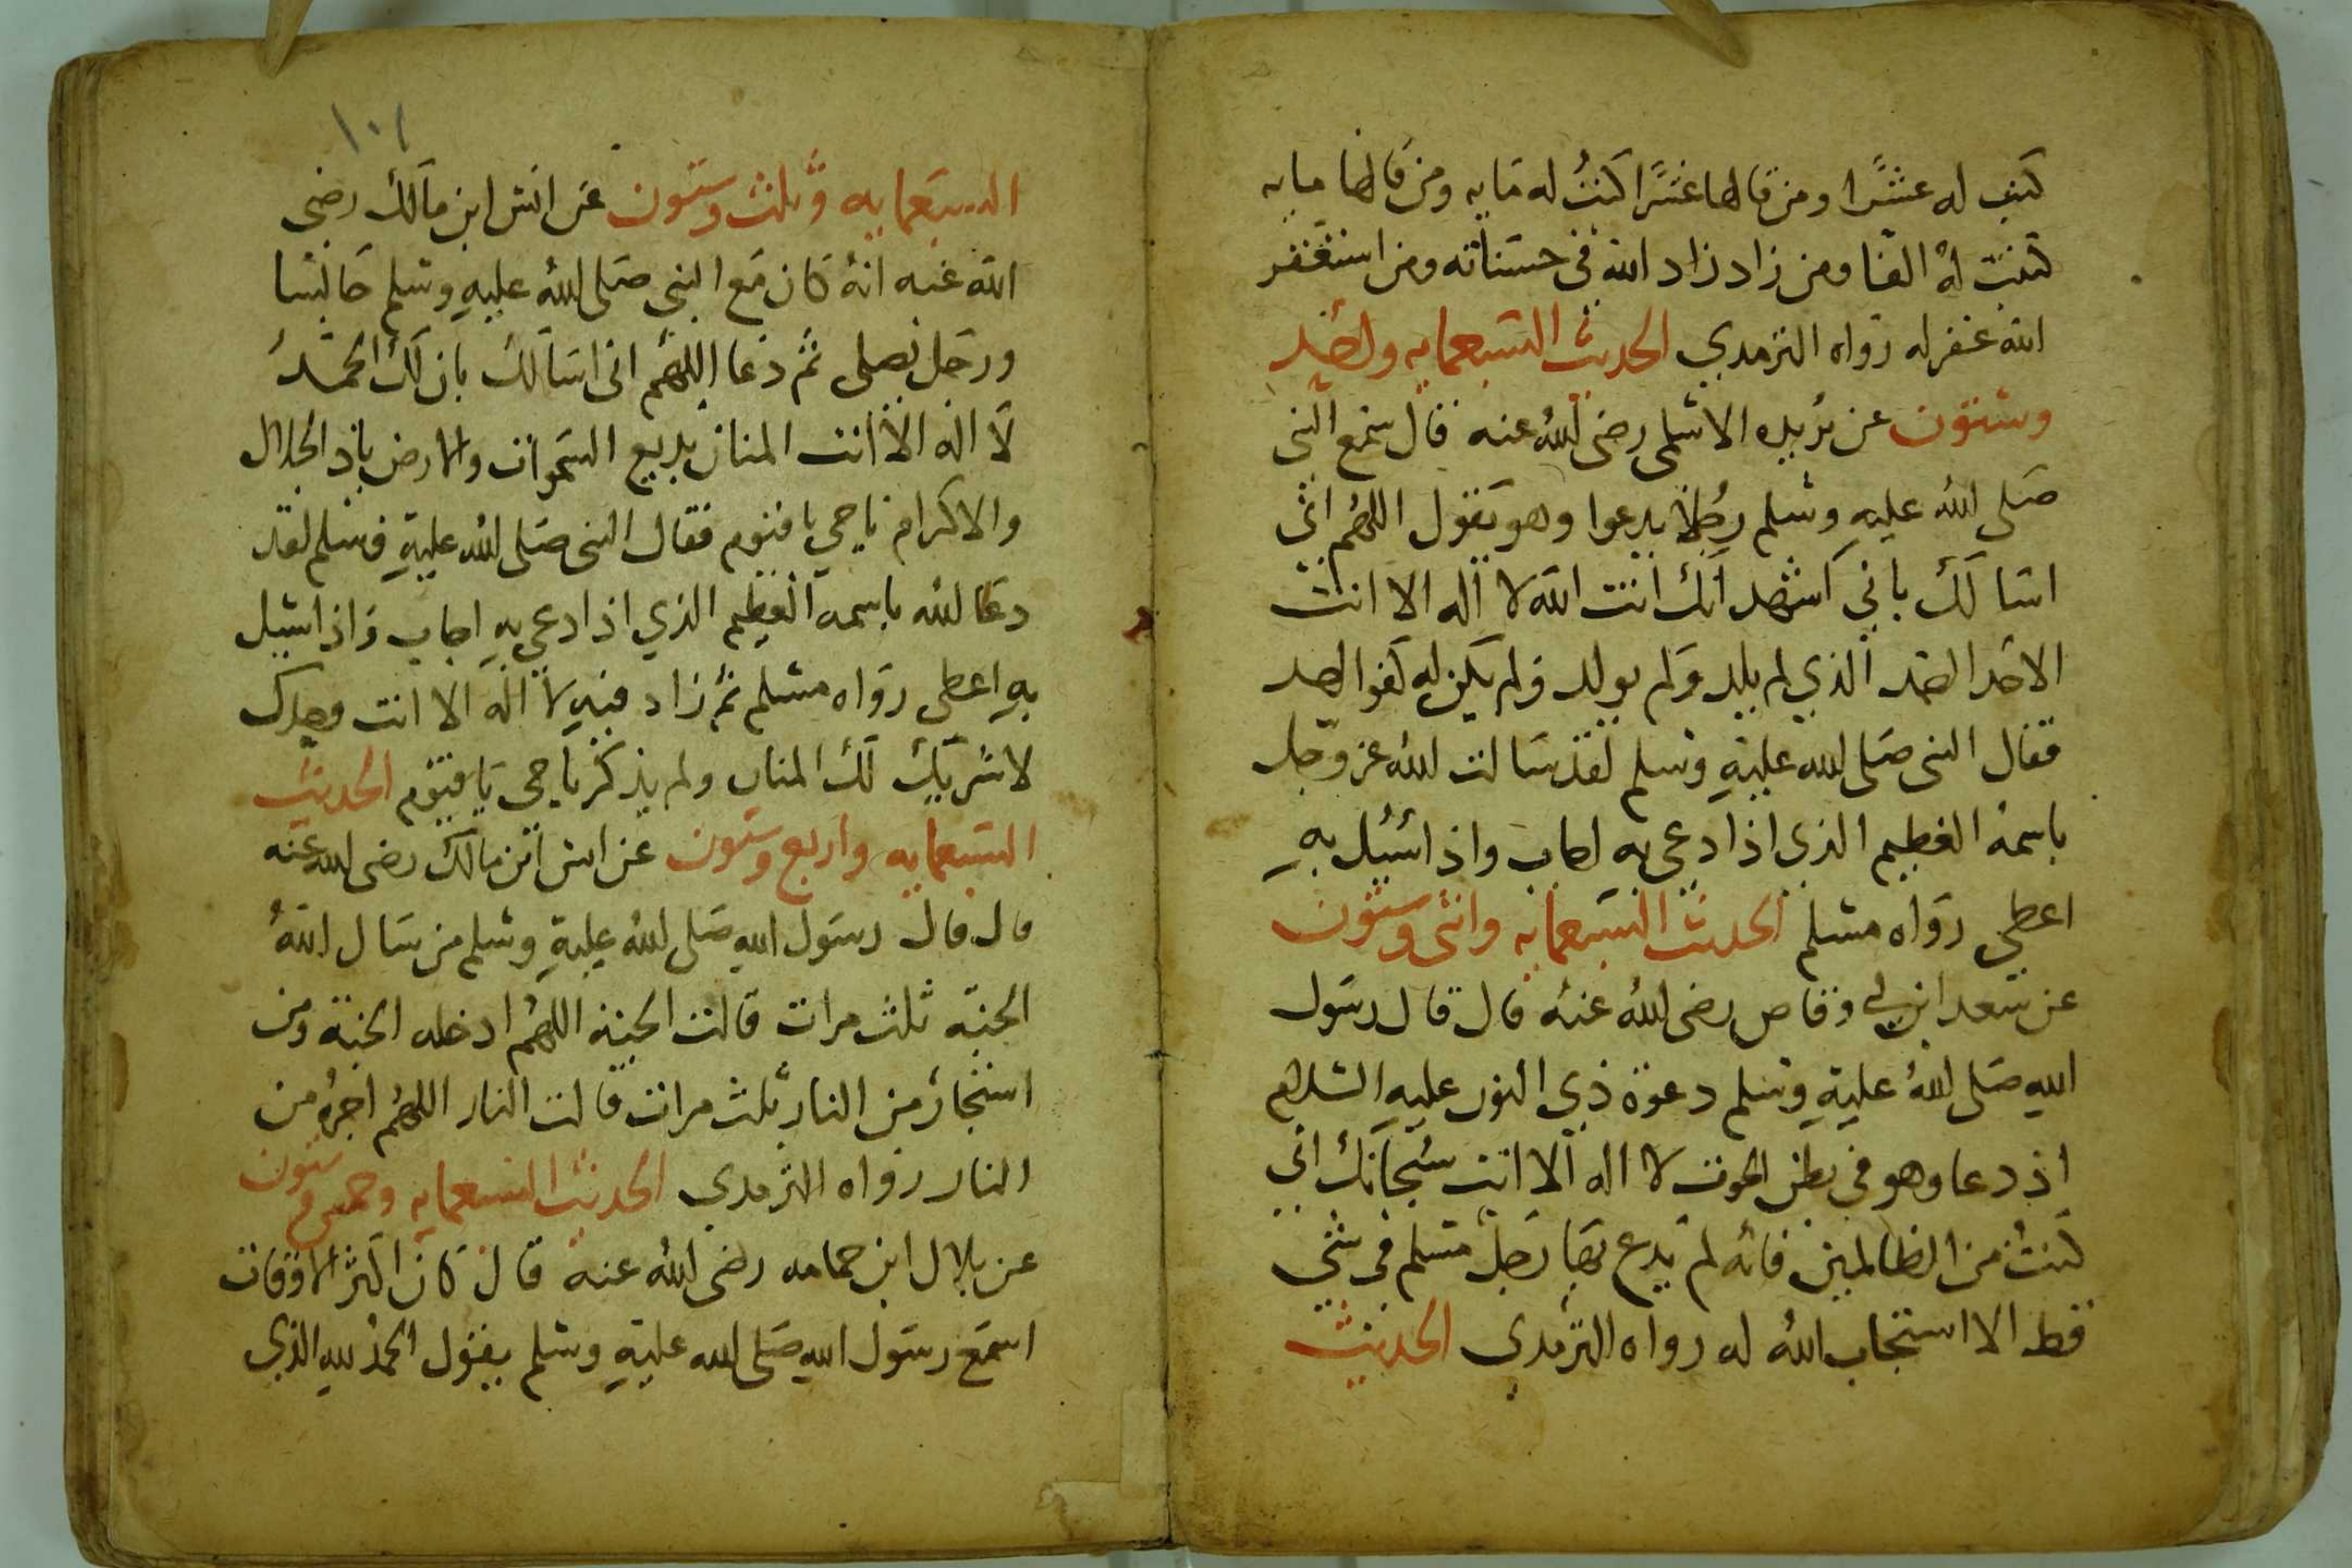 كتب له عشرًا ومن قالها عشرًا كتبت له مايه ومن قالها مايه
كتبت له الفا ومن زاد زاد الله في حسناته ومن استغفر
الله غفر له رواه الترمدي الحديث التسعمايه واحد
وستون عن بريده الاسلمى رضى الله عنه قال سمع النبي
صلى الله عليه وسلم رجلا يدعوا وهو يقول اللهم اني
اسالك باني اشهد انك انت الله لا اله الا انت
الاحد الصمد الذي لم يلد ولم يولد ولم يكن له كفوا احد
فقال النبي صلى الله عليه وسلم لقد سالت الله عز وجل
باسمه العظيم الذي اذا دعي به اجاب واذا سئيل به
اعطي رواه مسلم الحديث التسعمايه واثنى وستون
عن سعد ابن ابي وقاص رضى الله عنه قال قال رسول
الله صلى الله عليه وسلم دعوة ذي النون عليه السلام
اذ دعا وهو في بطن الحوت لا اله الا انت سبحانك اني
كنت من الظالمين فانه لم يدع بها رجل مسلم في شي
قط الا استجاب الله له رواه الترمدي الحديث
١٠١
التسعمايه وثلث وستون عن انس ابن مالك رضي
الله عنه انه كان مع النبي صلى الله عليه وسلم جالسا
ورجل يصلى ثم دعا اللهم اني اسالك بان لك الحمد
لا اله الا انت المنان بديع السموات والارض ياذ الجلال
والاكرام يا حي يا قيوم فقال النبى صلى الله عليه وسلم لقد
دعا الله باسمه العظيم الذي اذا دعي به اجاب واذا سيل
به اعطي رواه مسلم ثم زاد فيه لا اله الا انت وحدك
لا شريك لك المنان ولم يذكر يا حي يا قيوم الحديث
التسعمايه واربع وستون عن انس ابن مالك رضى الله عنه
قال قال رسول الله صلى الله عليه وسلم من سال الله
الجنة ثلث مرات قالت الجنة اللهم ادخله الجنة ومن
استجار من النار ثلث مرات قالت النار اللهم اجره من
النار رواه الترمدي الحديث التسعمايه وخمس وستون
عن بلال ابن حمامه رضى الله عنه قال كان اكثر الاوقات
اسمع رسول الله صلى الله عليه وسلم يقول الحمد لله الذي